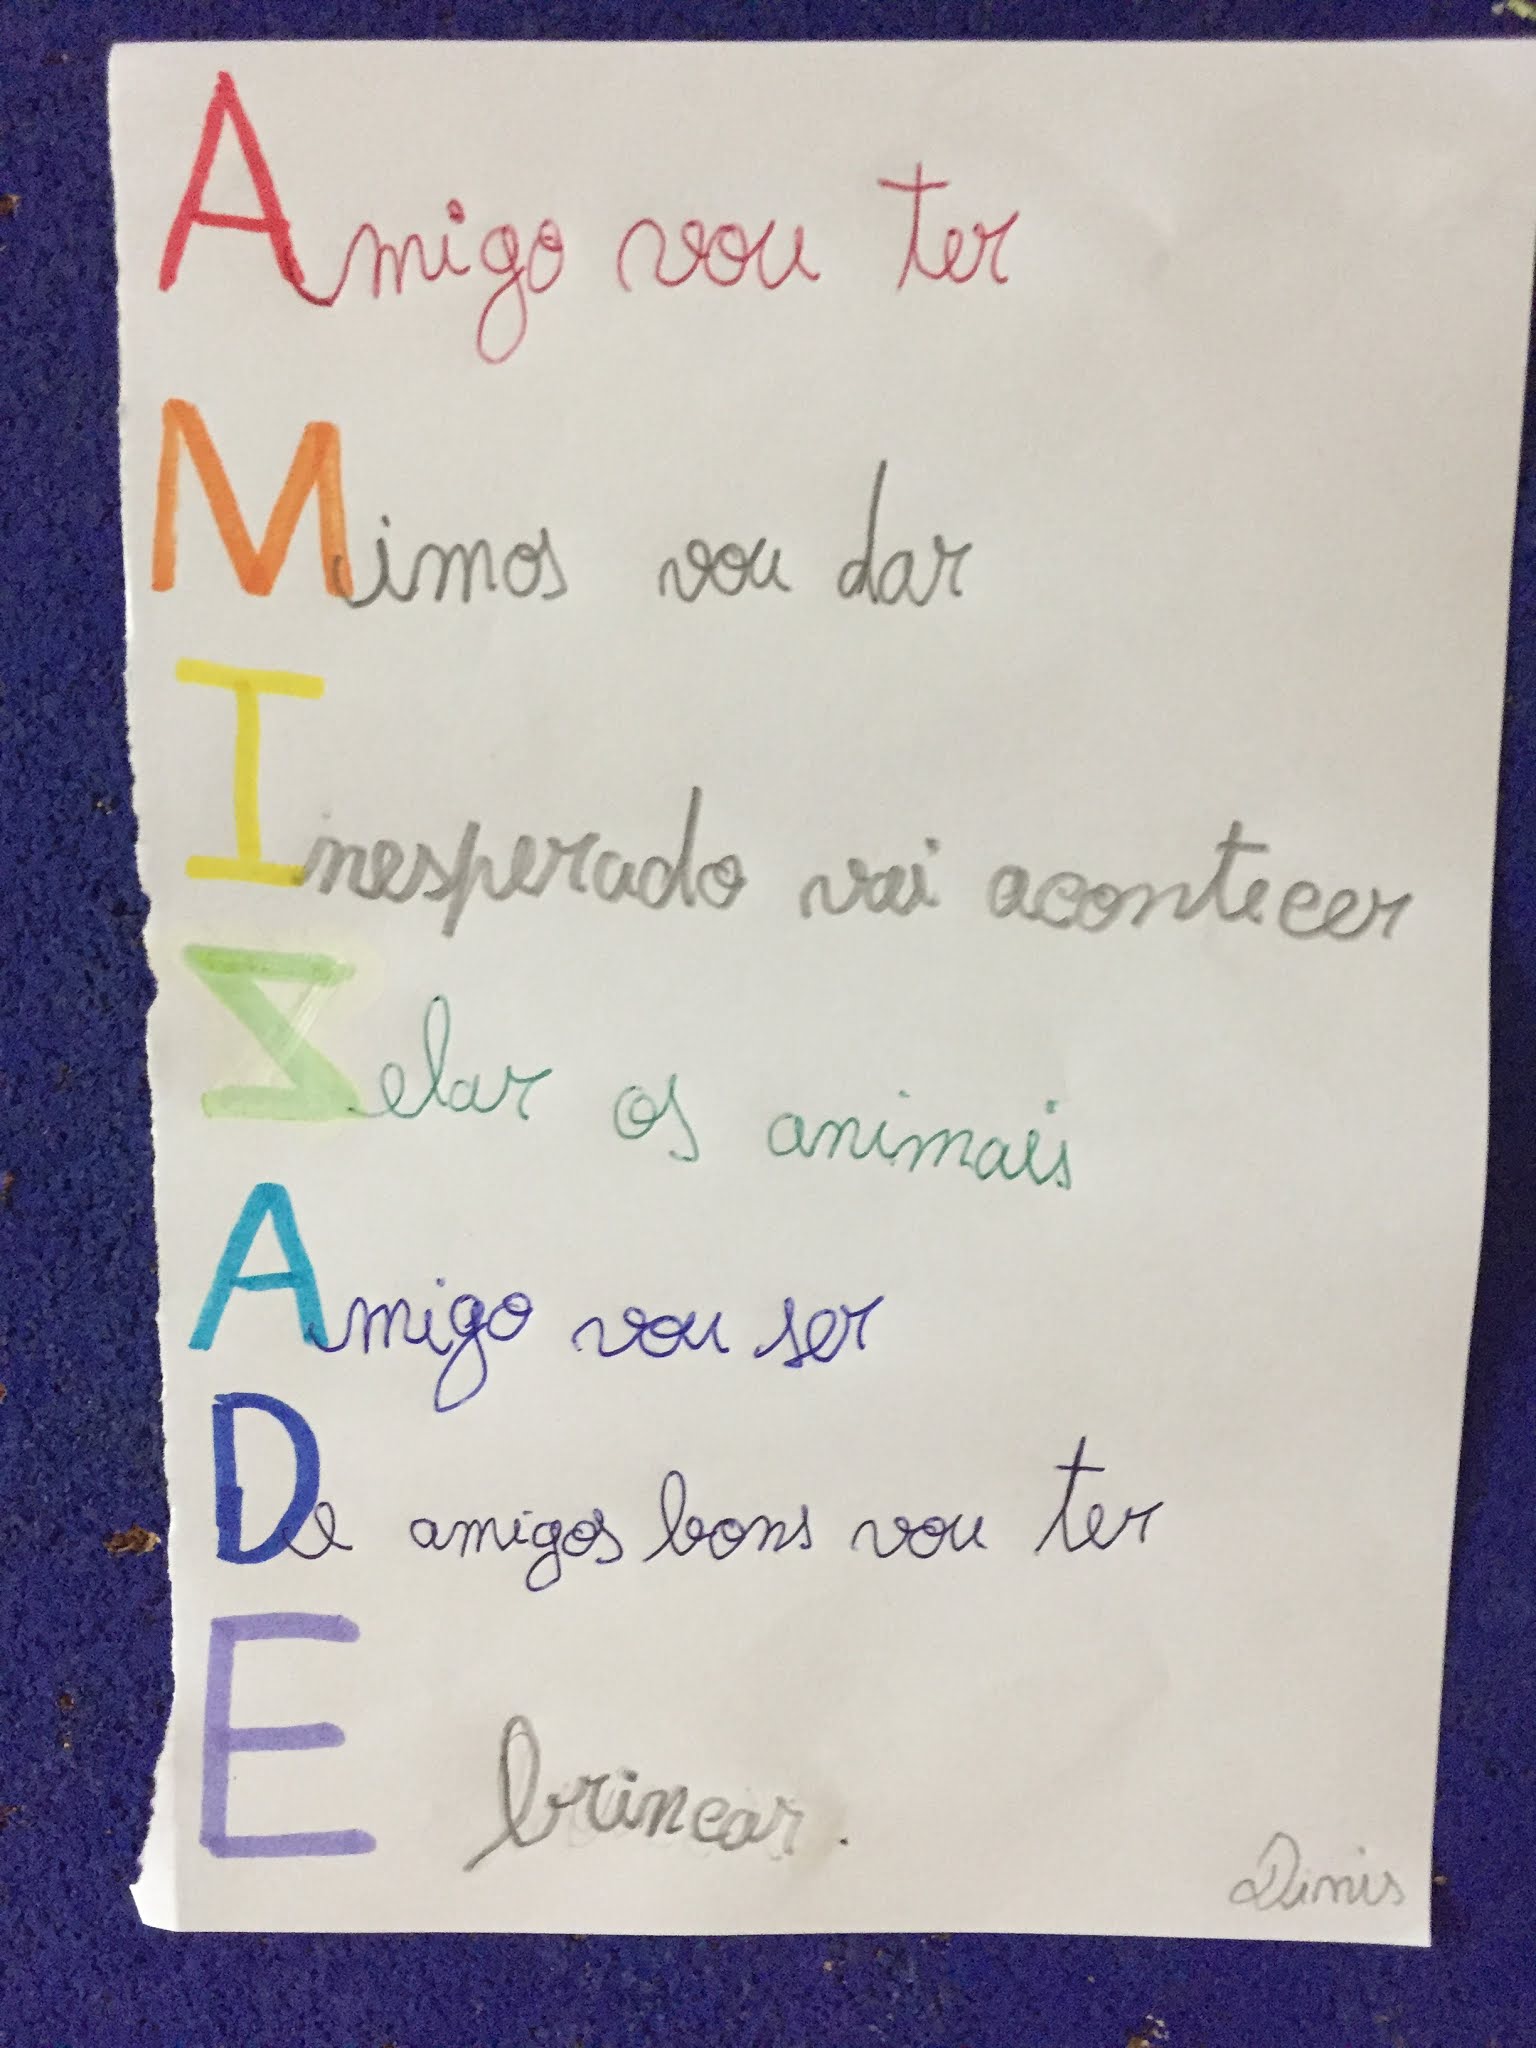 Amigo vou ter
Mimos vou dar
Inesperado vai acontecer
Zelar os animais
Amigo vou ser
De amigos bons vou ter
E brincar.
Dinis